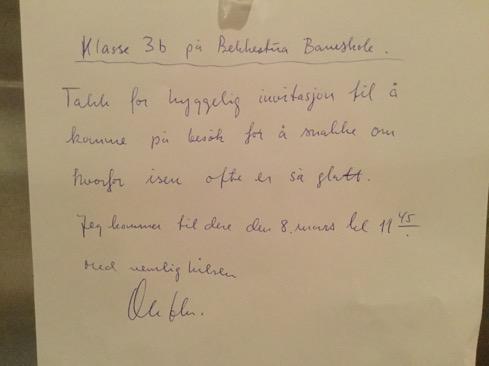 Klasse 3b på Bekkestua Barneskole.
Takk for hyggelig invitasjon til å
komme på besøk for å snakke om
hvorfor isen ofte er så glatt.
Jeg kommer til dere den 8. mars kl 11 45
Med vennlig hilsen